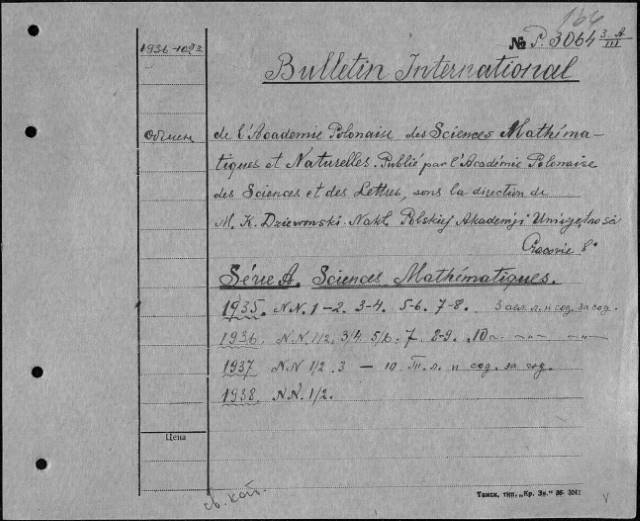 164
№ P. 3064 3 A / III
1936-1092
Bulletin International
Обмен
de l'Académie Polonaise des Sciences Mathéma-
tiques et Naturelles. Publié par l'Académie Polonaise
des Sciences et des Lettres, sous la direction de
M. K. Dziewonski. Nakł. Polskiej Akademji Umiejętności
Cracovie 8°
Série A. Sciences Mathématiques.
1935. NN. 1-2. 3-4. 5-6. 7-8. Загл. л. и сод. за год.
1936. N.N. 1/2. 3/4. 5/6. 7. 8-9. 10 -„- -„- -„-
1937 NN 1/2. 3 — 10. Т. л. и сод. за год.
1938. NN. 1/2.
Цена
св. кат.
Томск, тип. „Кр. Зн." 36
V